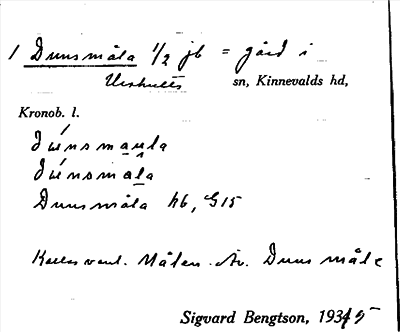 1 Dunsmåla 1/2 jb = gård i
Urshults sn, Kinnevalds hd,
Kronob. l.
dúnsmaula
dúnsmala
Dunsmåla hb, G15
Kallas vanl. Målen. Av. Duns måle
Sigvard Bengtson, 1935